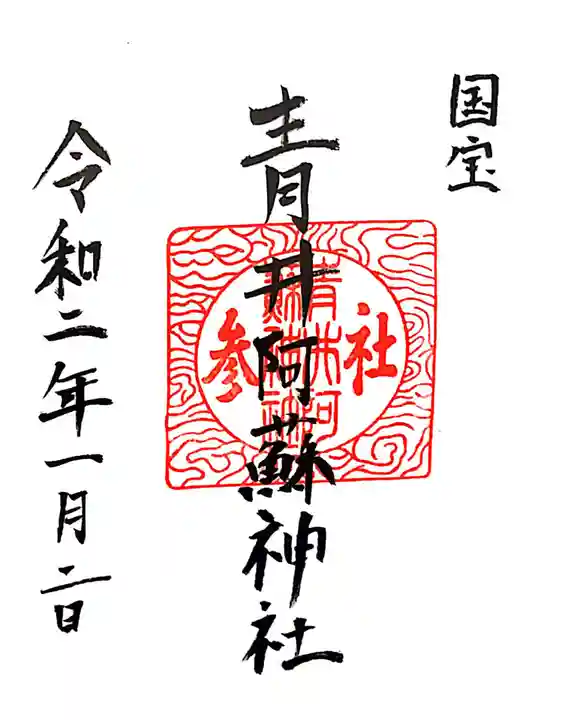 国宝
青井阿蘇神社
社参
令和二年一月二日